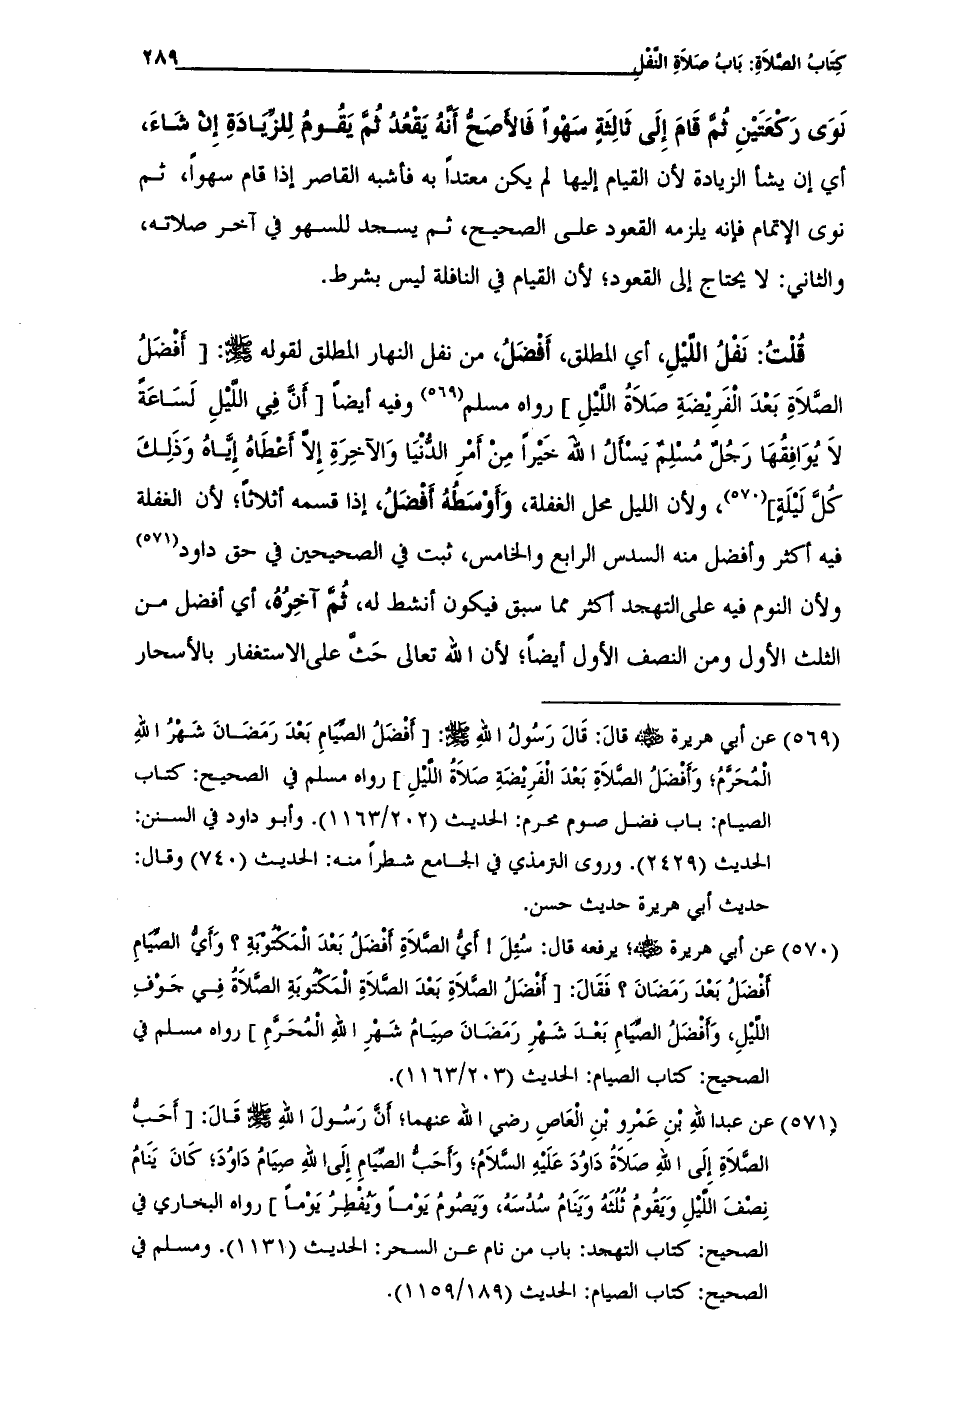 كِتَابُ الصَّلَاةِ: بَابُ صَلَاةِ النَّفْلِ ٢٨٩
نَوَى رَكْعَتَيْنِ ثُمَّ قَامَ إِلَى ثَالِثَةٍ سَهْواً فَالأَصَحُّ أَنَّهُ يَقْعُدُ ثُمَّ يَقُومُ لِلزِّيَادَةِ إِنْ شَاءَ،
أي إن يشأ الزيادة لأن القيام إليها لم يكن معتداً به فأشبه القاصر إذا قام سهواً، ثم
نوى الإتمام فإنه يلزمه القعود على الصحيح، ثم يسجد للسهو في آخر صلاته،
والثاني: لا يحتاج إلى القعود؛ لأن القيام في النافلة ليس بشرط.
قُلْتُ: نَفْلُ اللَّيْلِ، أي المطلق، أَفْضَلُ، من نفل النهار المطلق لقوله ﷺ: [ أَفْضَلُ
الصَّلَاةِ بَعْدَ الْفَرِيْضَةِ صَلَاةُ اللَّيْلِ ] رواه مسلم(٥٦٩) وفيه أيضاً [ أَنَّ فِي اللَّيْلِ لَسَاعَةً
لاَ يُوَافِقُهَا رَجُلٌ مُسْلِمٌ يَسْأَلُ اللهَ خَيْراً مِنْ أَمْرِ الدُّنْيَا وَالآخِرَةِ إِلاَّ أَعْطَاهُ إِيَّاهُ وَذَلِكَ
كُلَّ لَيْلَةٍ](٥٧٠)، ولأن الليل محل الغفلة، وَأَوْسَطُهُ أَفْضَلُ، إذا قسمه أثلاثاً؛ لأن الغفلة
فيه أكثر وأفضل منه السدس الرابع والخامس، ثبت في الصحيحين في حق داود(٥٧١)
ولأن النوم فيه على التهجد أكثر مما سبق فيكون أنشط له، ثُمَّ آخِرُهُ، أي أفضل من
الثلث الأول ومن النصف الأول أيضاً؛ لأن الله تعالى حَثَّ على الاستغفار بالأسحار
(٥٦٩) عن أبي هريرة ﷺ قال: قَالَ رَسُولُ اللهِ ﷺ: [ أَفْضَلُ الصِّيَامِ بَعْدَ رَمَضَانَ شَهْرُ اللهِ
الْمُحَرَّمُ؛ وَأَفْضَلُ الصَّلَاةِ بَعْدَ الْفَرِيْضَةِ صَلَاةُ اللَّيْلِ ] رواه مسلم في الصحيح: كتاب
الصيام: باب فضل صوم محرم: الحديث (١١٦٣/٢٠٢). وأبو داود في السنن:
الحديث (٢٤٢٩). وروى الترمذي في الجامع شطراً منه: الحديث (٧٤٠) وقال:
حديث أبي هريرة حديث حسن.
(٥٧٠) عن أبي هريرة ﷺ؛ يرفعه قال: سُئِلَ ! أَيُّ الصَّلَاةِ أَفْضَلُ بَعْدَ الْمَكْتُوبَةِ ؟ وَأَيُّ الصِّيَامِ
أَفْضَلُ بَعْدَ رَمَضَانَ ؟ فَقَالَ: [ أَفْضَلُ الصَّلَاةِ بَعْدَ الصَّلَاةِ الْمَكْتُوبَةِ الصَّلَاةُ فِي جَوْفِ
اللَّيْلِ، وَأَفْضَلُ الصِّيَامِ بَعْدَ شَهْرِ رَمَضَانَ صِيَامُ شَهْرِ اللهِ الْمُحَرَّمِ ] رواه مسلم في
الصحيح: كتاب الصيام: الحديث (١١٦٣/٢٠٣).
(٥٧١) عن عبدا للهِ بْنِ عَمْرِو بْنِ الْعَاصِ رضي الله عنهما؛ أَنَّ رَسُولَ اللهِ ﷺ قَالَ: [ أَحَبُّ
الصَّلَاةِ إِلَى اللهِ صَلَاةُ دَاوُدَ عَلَيْهِ السَّلَامُ؛ وَأَحَبُّ الصِّيَامِ إِلَى اللهِ صِيَامُ دَاوُدَ؛ كَانَ يَنَامُ
نِصْفَ اللَّيْلِ وَيَقُومُ ثُلُثَهُ وَيَنَامُ سُدُسَهُ، وَيَصُومُ يَوْماً وَيُفْطِرُ يَوْماً ] رواه البخاري في
الصحيح: كتاب التهجد: باب من نام عن السحر: الحديث (١١٣١). ومسلم في
الصحيح: كتاب الصيام: الحديث (١١٥٩/١٨٩).